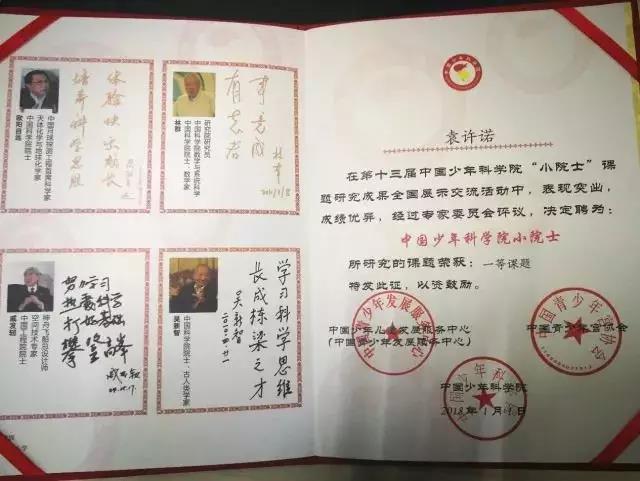 体验快乐成长
培养科学思想
中国月球探测工程首席科学家
天体化学与地球化学家
中国科学院院士
欧阳自远
有志者
事竟成
林群
研究院研究员
中国科学院数学与系统科学
中国科学院院士、数学家
林群
努力学习
攀登高峰
神舟飞船总设计师
空间技术专家
中国工程院院士
戚发轫
学习科学思维
长成栋梁之才
吴新智
二〇一〇·四·廿一
中国科学院院士、古人类学家
吴新智
袁许诺
在第十三届中国少年科学院“小院士”课
题研究成果全国展示交流活动中，表现突出，
成绩优异，经过专家委员会评议，决定聘为：
中国少年科学院小院士
所研究的课题荣获：一等课题
特发此证，以资鼓励。
中国少年儿童发展服务中心
（中国青少年发展服务中心）
中国青少年宫协会
中国少年科学院
2018年1月